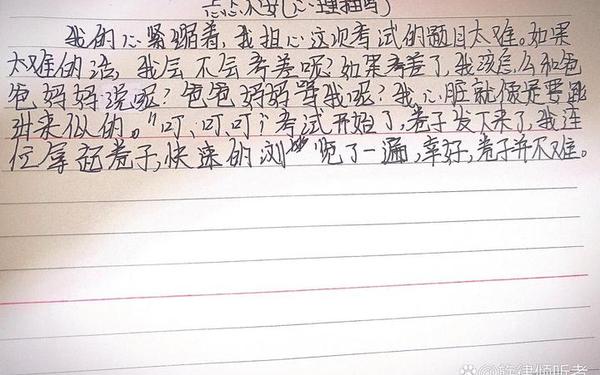 忐忑不安(心理描写)
我的心紧缩着，我担心这次考试的题目太难。如果
太难的话，我会不会考差呢？如果考差了，我该怎么和爸
爸妈妈说呢？爸爸妈妈骂我呢？我心脏就像是要跳
出来似的。"叮、叮、叮"考试开始了，卷子发下来了，我连
忙拿起卷子，快速的浏览了一遍，幸好，卷子并不难。
旋律倾听者